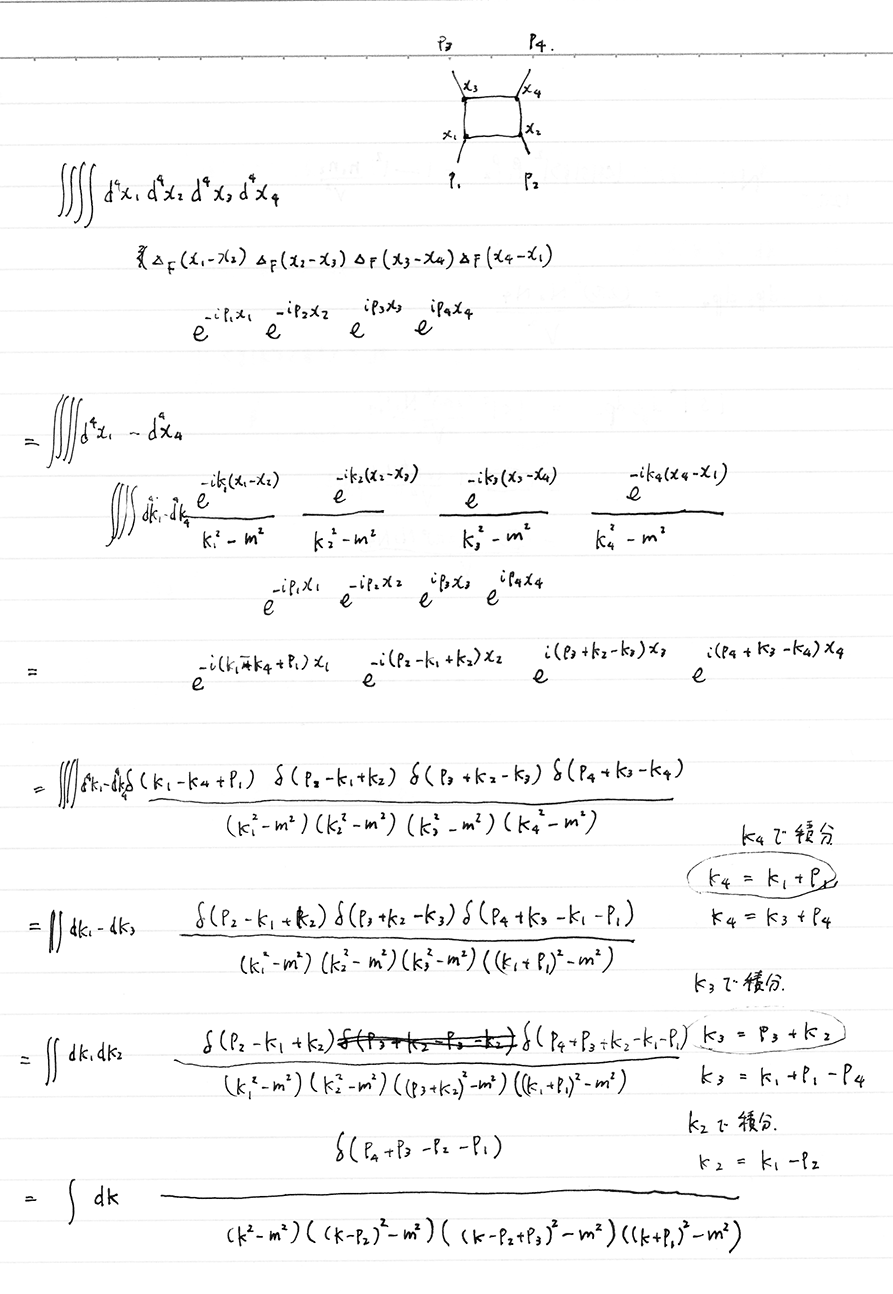 P₃ P₄.
x₃ x₄
x₁ x₂
P₁ P₂
∫∫∫∫ d⁴x₁ d⁴x₂ d⁴x₃ d⁴x₄
Δ_F(x₁-x₂) Δ_F(x₂-x₃) Δ_F(x₃-x₄) Δ_F(x₄-x₁)
e^{-iP₁x₁} e^{-iP₂x₂} e^{iP₃x₃} e^{iP₄x₄}
= ∫∫∫∫ d⁴x₁ - d⁴x₄
∫∫∫∫ d⁴k₁-d⁴k₄ e^{-ik₁(x₁-x₂)}/(k₁²-m²) e^{-ik₂(x₂-x₃)}/(k₂²-m²) e^{-ik₃(x₃-x₄)}/(k₃²-m²) e^{-ik₄(x₄-x₁)}/(k₄²-m²)
e^{-iP₁x₁} e^{-iP₂x₂} e^{iP₃x₃} e^{iP₄x₄}
= e^{-i(k₁-k₄+P₁)x₁} e^{-i(P₂-k₁+k₂)x₂} e^{i(P₃+k₂-k₃)x₃} e^{i(P₄+k₃-k₄)x₄}
= ∫∫∫∫ d⁴k₁-d⁴k₄ δ(k₁-k₄+P₁) δ(P₂-k₁+k₂) δ(P₃+k₂-k₃) δ(P₄+k₃-k₄)
(k₁²-m²)(k₂²-m²)(k₃²-m²)(k₄²-m²)
k₄で積分
k₄ = k₁+P₁
k₄ = k₃+P₄
= ∫∫ dk₁-dk₃ δ(P₂-k₁+k₂) δ(P₃+k₂-k₃) δ(P₄+k₃-k₁-P₁)
(k₁²-m²)(k₂²-m²)(k₃²-m²)((k₁+P₁)²-m²)
k₃で積分.
k₃ = P₃+k₂
k₃ = k₁+P₁-P₄
= ∫∫ dk₁dk₂ δ(P₂-k₁+k₂) δ(P₃+k₂-P₃-k₂) δ(P₄+P₃+k₂-k₁-P₁)
(k₁²-m²)(k₂²-m²)((P₃+k₂)²-m²)((k₁+P₁)²-m²)
k₂で積分.
k₂ = k₁-P₂
δ(P₄+P₃-P₂-P₁)
= ∫ dk
(k²-m²)((k-P₂)²-m²)((k-P₂+P₃)²-m²)((k+P₁)²-m²)